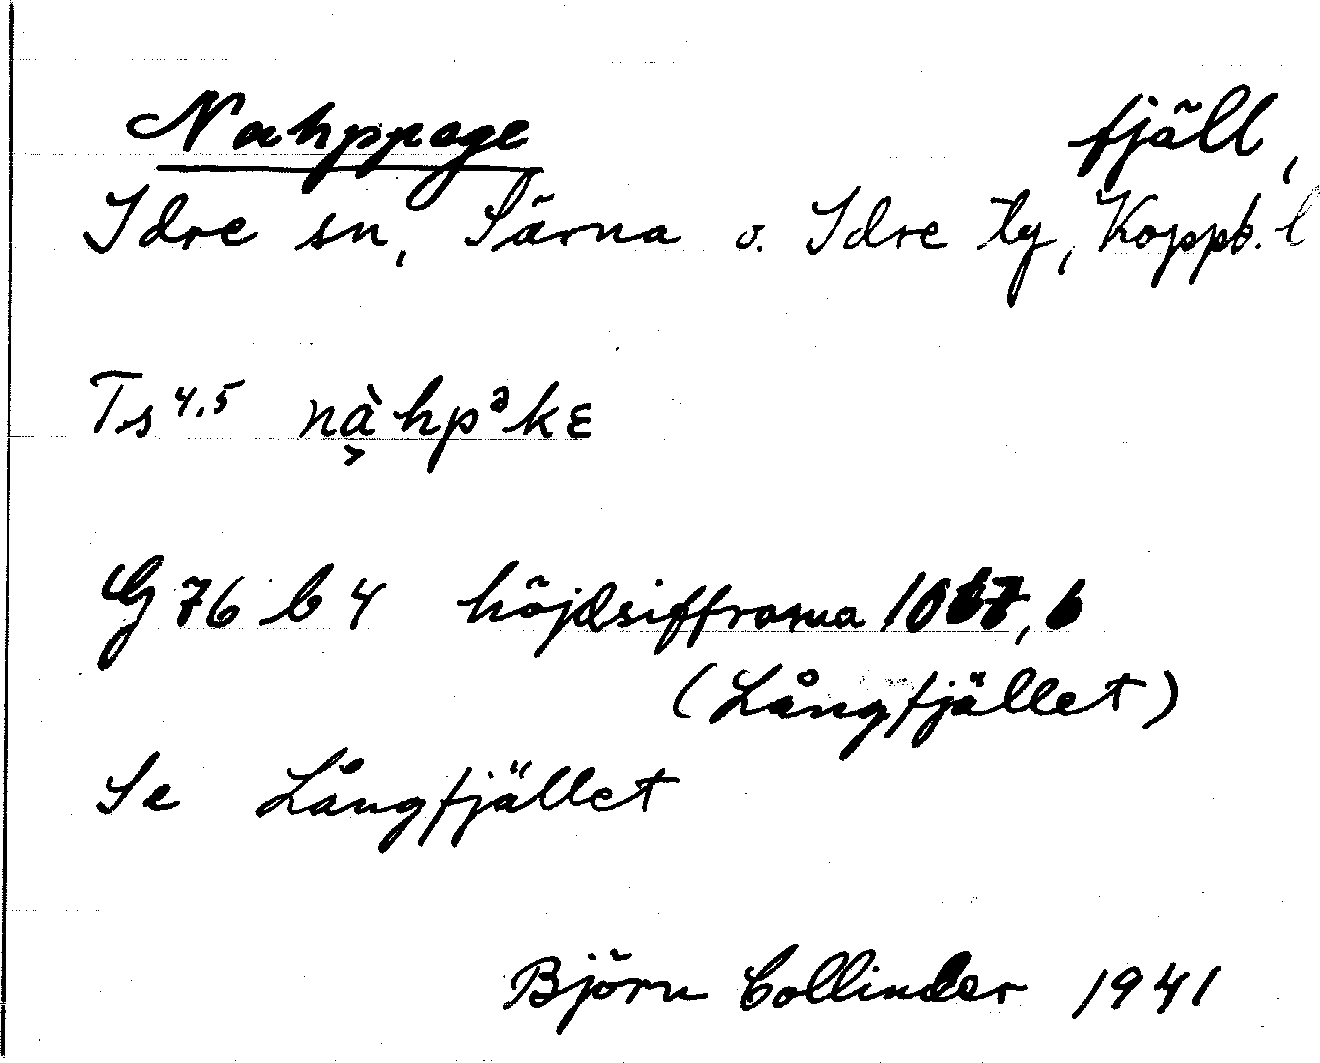 Nahppage fjäll,
Idre sn, Särna o. Idre tg, Koppb. l
Ts 4.5 nàhpᵊkɛ
G 76 b 4 höjdsiffrorna
(Långfjället)
Se Långfjället
Björn Collinder 1941